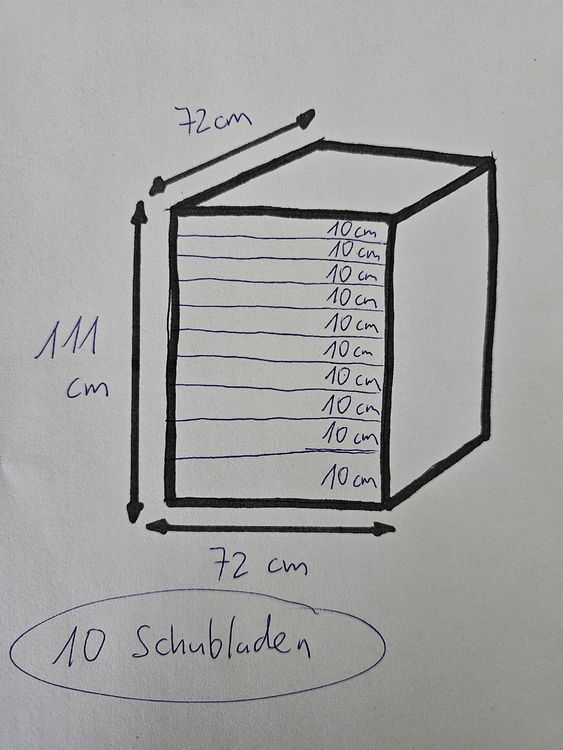 72cm
10cm
10cm
10cm
10cm
10cm
10cm
10cm
10cm
10cm
10cm
111
cm
72 cm
10 Schubladen